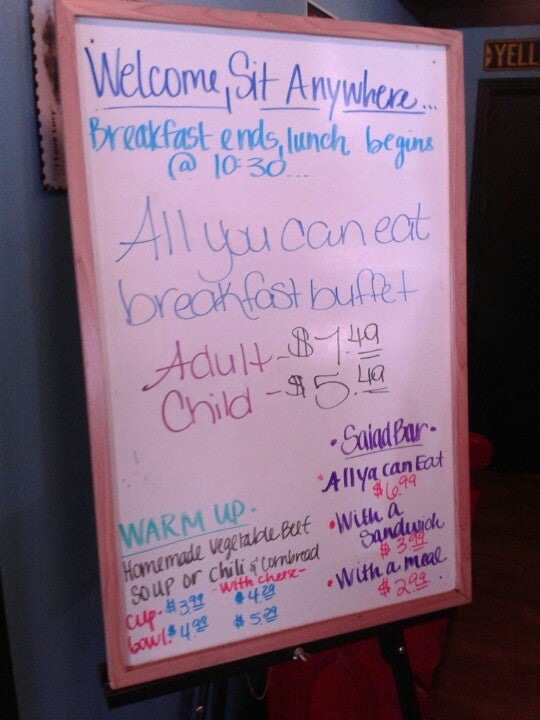 Welcome, Sit Anywhere...
Breakfast ends, lunch begins
@ 10:30...
All you can eat
breakfast buffet
Adult - $7.49
Child - $5.49
• Salad Bar •
• All ya can Eat
$6.99
• With a
Sandwich
$3.99
• With a meal
$2.99
WARM UP -
Homemade Vegetable Beef
soup or chili & Cornbread
- With Cheese -
cup - $3.99 $4.29
bowl! $4.99 $5.29
YELL